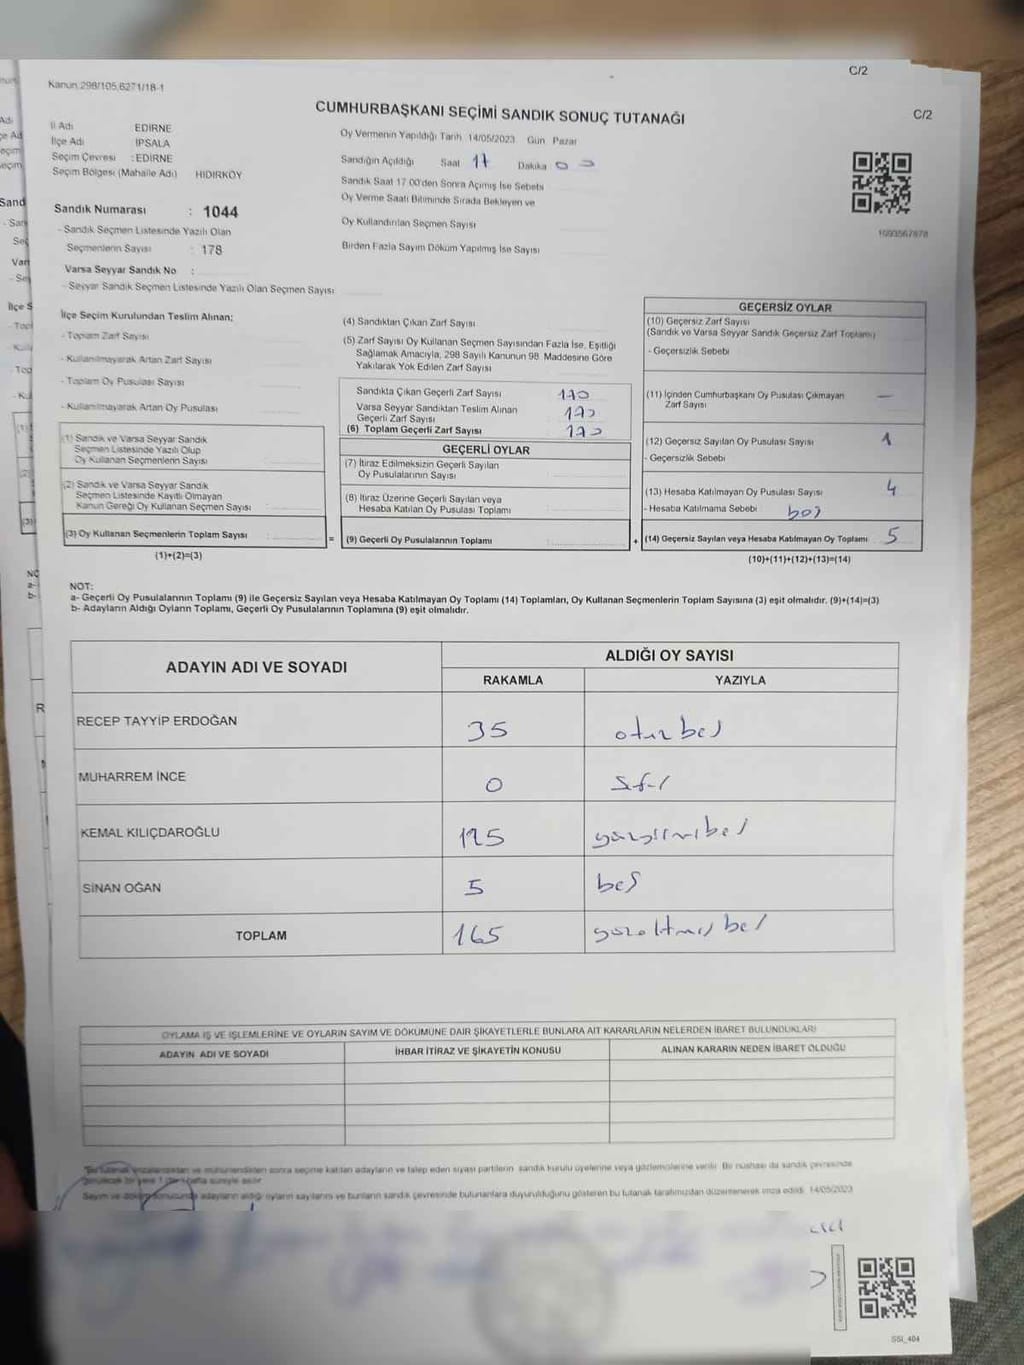 C/2
Kanun:298/105,6271/18-1
C/2
CUMHURBAŞKANI SEÇİMİ SANDIK SONUÇ TUTANAĞI
İl Adı EDİRNE
İlçe Adı İPSALA
Seçim Çevresi : EDİRNE
Seçim Bölgesi (Mahalle Adı) HIDIRKÖY
Sandık Numarası : 1044
- Sandık Seçmen Listesinde Yazılı Olan
Seçmenlerin Sayısı : 178
Varsa Seyyar Sandık No :
- Seyyar Sandık Seçmen Listesinde Yazılı Olan Seçmen Sayısı
Oy Vermenin Yapıldığı Tarih 14/05/2023 Gün Pazar
Sandığın Açıldığı Saat 17 Dakika 00
Sandık Saat 17.00'den Sonra Açılmış İse Sebebi
Oy Verme Saati Bitiminde Sırada Bekleyen ve
Oy Kullandırılan Seçmen Sayısı
Birden Fazla Sayım Döküm Yapılmış İse Sayısı
1093567878
İlçe Seçim Kurulundan Teslim Alınan;
- Toplam Zarf Sayısı
- Kullanılmayarak Artan Zarf Sayısı
- Toplam Oy Pusulası Sayısı
- Kullanılmayarak Artan Oy Pusulası
(1) Sandık ve Varsa Seyyar Sandık
Seçmen Listesinde Yazılı Olup
Oy Kullanan Seçmenlerin Sayısı
(2) Sandık ve Varsa Seyyar Sandık
Seçmen Listesinde Kayıtlı Olmayan
Kanun Gereği Oy Kullanan Seçmen Sayısı :
(3) Oy Kullanan Seçmenlerin Toplam Sayısı :
(1)+(2)=(3)
=
(4) Sandıktan Çıkan Zarf Sayısı
(5) Zarf Sayısı Oy Kullanan Seçmen Sayısından Fazla İse, Eşitliği
Sağlamak Amacıyla, 298 Sayılı Kanunun 98. Maddesine Göre
Yakılarak Yok Edilen Zarf Sayısı
Sandıkta Çıkan Geçerli Zarf Sayısı 170
Varsa Seyyar Sandıktan Teslim Alınan
Geçerli Zarf Sayısı 170
(6) Toplam Geçerli Zarf Sayısı 170
GEÇERLİ OYLAR
(7) İtiraz Edilmeksizin Geçerli Sayılan
Oy Pusulalarının Sayısı
(8) İtiraz Üzerine Geçerli Sayılan veya
Hesaba Katılan Oy Pusulası Toplamı
(9) Geçerli Oy Pusulalarının Toplamı
+
GEÇERSİZ OYLAR
(10) Geçersiz Zarf Sayısı
(Sandık ve Varsa Seyyar Sandık Geçersiz Zarf Toplamı)
- Geçersizlik Sebebi
(11) İçinden Cumhurbaşkanı Oy Pusulası Çıkmayan
Zarf Sayısı —
(12) Geçersiz Sayılan Oy Pusulası Sayısı 1
- Geçersizlik Sebebi
(13) Hesaba Katılmayan Oy Pusulası Sayısı 4
- Hesaba Katılmama Sebebi boş
(14) Geçersiz Sayılan veya Hesaba Katılmayan Oy Toplamı 5
(10)+(11)+(12)+(13)=(14)
NOT:
a- Geçerli Oy Pusulalarının Toplamı (9) ile Geçersiz Sayılan veya Hesaba Katılmayan Oy Toplamı (14) Toplamları, Oy Kullanan Seçmenlerin Toplam Sayısına (3) eşit olmalıdır. (9)+(14)=(3)
b- Adayların Aldığı Oyların Toplamı, Geçerli Oy Pusulalarının Toplamına (9) eşit olmalıdır.
ADAYIN ADI VE SOYADI
ALDIĞI OY SAYISI
RAKAMLA YAZIYLA
RECEP TAYYİP ERDOĞAN 35 otuzbeş
MUHARREM İNCE 0 sıfır
KEMAL KILIÇDAROĞLU 125 yüzyirmibeş
SİNAN OĞAN 5 beş
TOPLAM 165 yüzaltmışbeş
OYLAMA İŞ VE İŞLEMLERİNE VE OYLARIN SAYIM VE DÖKÜMÜNE DAİR ŞİKAYETLERLE BUNLARA AİT KARARLARIN NELERDEN İBARET BULUNDUKLARI
ADAYIN ADI VE SOYADI
İHBAR İTİRAZ VE ŞİKAYETİN KONUSU
ALINAN KARARIN NEDEN İBARET OLDUĞU
sonra seçime katılan adayların ve talep eden siyasi partilerin sandık kurulu üyelerine veya gözlemcilerine verilir. Bir nüshası da sandık çevresinde
adayların aldığı oyların sayılarını ve bunların sandık çevresinde bulunanlara duyurulduğunu gösteren bu tutanak tarafımızdan düzenlenerek imza edildi. 14/05/2023
SSI_404